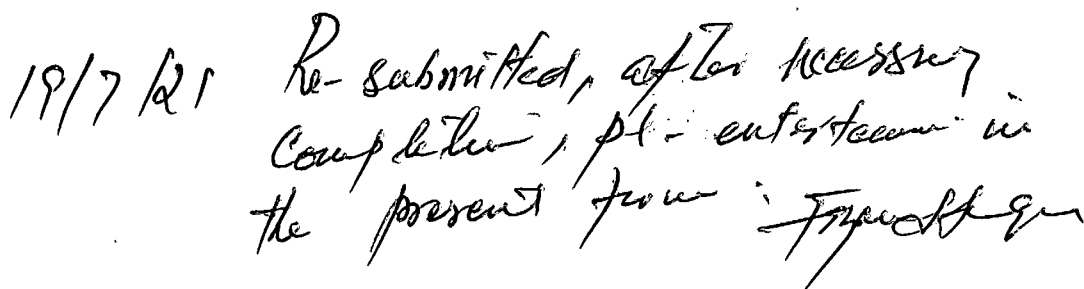 19/7/21 Re-submitted, after necessary
completion, pl- entertain in
the present from.